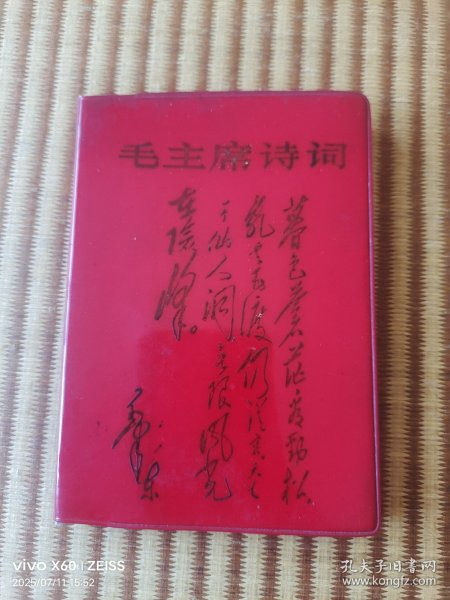 毛主席诗词
暮色苍茫看劲松
乱云飞渡仍从容天生
一个仙人洞无限风光
在险峰。
毛泽东
vivo X60 | ZEISS
2025/07/11 15:52
孔夫子旧书网
www.kongfz.com